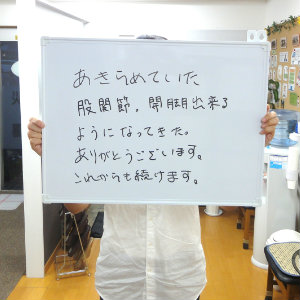 あきらめていた
股関節，開脚出来る
ようになってきた。
ありがとうございます。
これからも続けます。